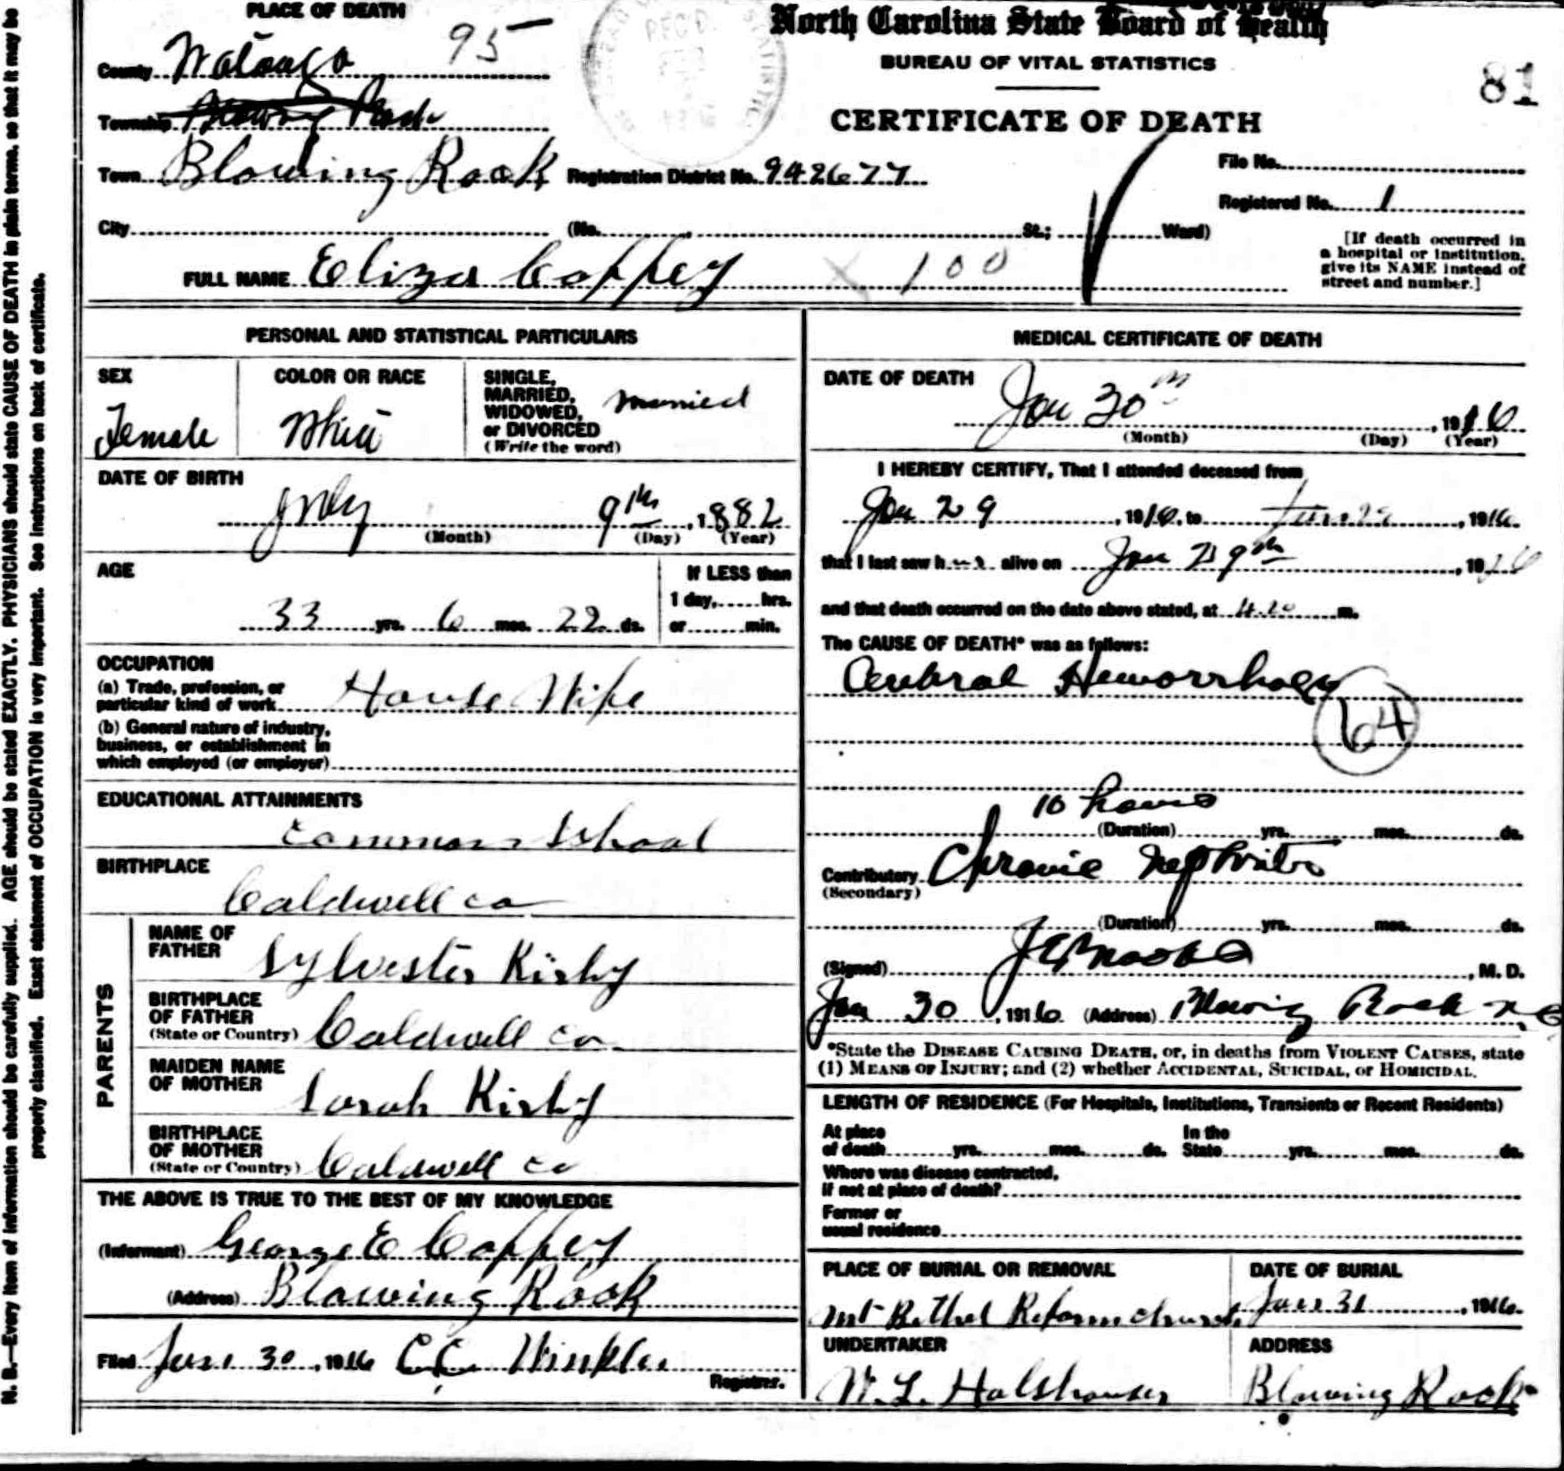 PLACE OF DEATH
North Carolina State Board of Health
BUREAU OF VITAL STATISTICS
CERTIFICATE OF DEATH
81
County Watauga 95
Township Blowing Rock
Town Blowing Rock Registration District No. 942677
File No.
Registered No. 1
City (No. St.; Ward)
[If death occurred in
a hospital or institution,
give its NAME instead of
street and number.]
FULL NAME Eliza Coffey X 100
PERSONAL AND STATISTICAL PARTICULARS
SEX
Female
COLOR OR RACE
White
SINGLE,
MARRIED,
WIDOWED,
or DIVORCED
(Write the word)
Married
DATE OF BIRTH
July 9th, 1882
(Month) (Day) (Year)
AGE
33 yrs. 6 mos. 22 ds.
If LESS than
1 day, hrs.
or min.
OCCUPATION
(a) Trade, profession, or
particular kind of work House Wife
(b) General nature of industry,
business, or establishment in
which employed (or employer)
EDUCATIONAL ATTAINMENTS
Common School
BIRTHPLACE
Caldwell co
PARENTS
NAME OF
FATHER
Sylvester Kirby
BIRTHPLACE
OF FATHER
(State or Country) Caldwell co.
MAIDEN NAME
OF MOTHER
Sarah Kirby
BIRTHPLACE
OF MOTHER
(State or Country) Caldwell co
THE ABOVE IS TRUE TO THE BEST OF MY KNOWLEDGE
(Informant) George E Coffey
(Address) Blowing Rock
Filed Jan 30, 1916 C.C. Winkler
Registrar.
MEDICAL CERTIFICATE OF DEATH
DATE OF DEATH
Jan 30th, 1916
(Month) (Day) (Year)
I HEREBY CERTIFY, That I attended deceased from
Jan 29, 1916, to Jan 29, 1916.
that I last saw her alive on Jan 29th, 1916
and that death occurred on the date above stated, at 4.20 m.
The CAUSE OF DEATH* was as follows:
Cerebral Hemorrhage
64
10 hours
(Duration) yrs. mos. ds.
Contributory Chronic Nephritis
(Secondary)
(Duration) yrs. mos. ds.
(Signed) , M. D.
Jan 30, 1916 (Address) Blowing Rock N.C
*State the DISEASE CAUSING DEATH, or, in deaths from VIOLENT CAUSES, state
(1) MEANS OF INJURY; and (2) whether ACCIDENTAL, SUICIDAL, or HOMICIDAL.
LENGTH OF RESIDENCE (For Hospitals, Institutions, Transients or Recent Residents)
At place
of death yrs. mos. ds.
In the
State yrs. mos. ds.
Where was disease contracted,
if not at place of death?
Former or
usual residence
PLACE OF BURIAL OR REMOVAL
Mt Bethel Reform church
DATE OF BURIAL
Jan 31, 1916.
UNDERTAKER
W. L. Holshouser
ADDRESS
Blowing Rock
N. B.—Every item of information should be carefully supplied. AGE should be stated EXACTLY. PHYSICIANS should state CAUSE OF DEATH in plain terms, so that it may be
properly classified. Exact statement of OCCUPATION is very important. See instructions on back of certificate.